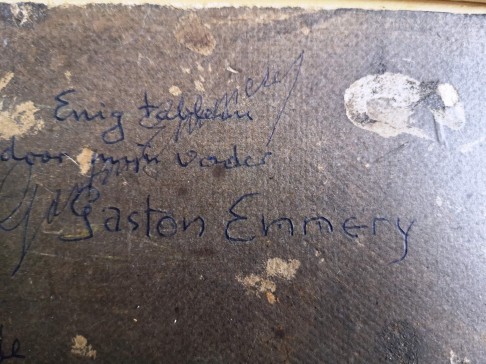 Enig tableau
door mijn vader
Gaston Emmery